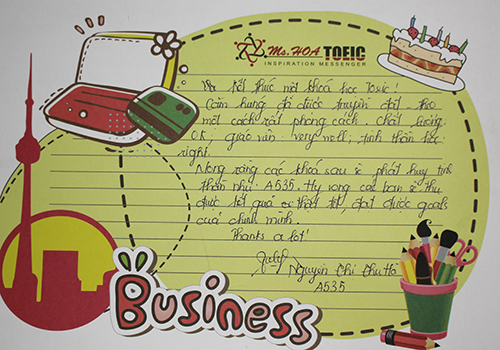 Ms.HOA TOEIC
INSPIRATION MESSENGER
Đã kết thúc một khoá học Toeic!
Cảm hứng đã được truyền đạt theo
một cách rất phong cách, chất lượng
OK, giáo viên very well, tinh thần học
right.
Mong rằng các khoá sau sẽ phát huy tinh
thần như A535. Hy vọng các bạn sẽ thu
được kết quả thật tốt, đạt được goals
của chính mình.
Thanks a lot!
Nguyễn Thị Thu Hà
A535
Business